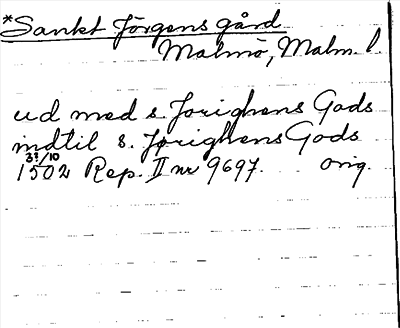 *Sankt Jörgens gård
Malmö, Malm. l.
ud med s. Jørighens Gods
indtil s. Jørighens Gods
31/10
1502 Rep. II nr 9697. orig.